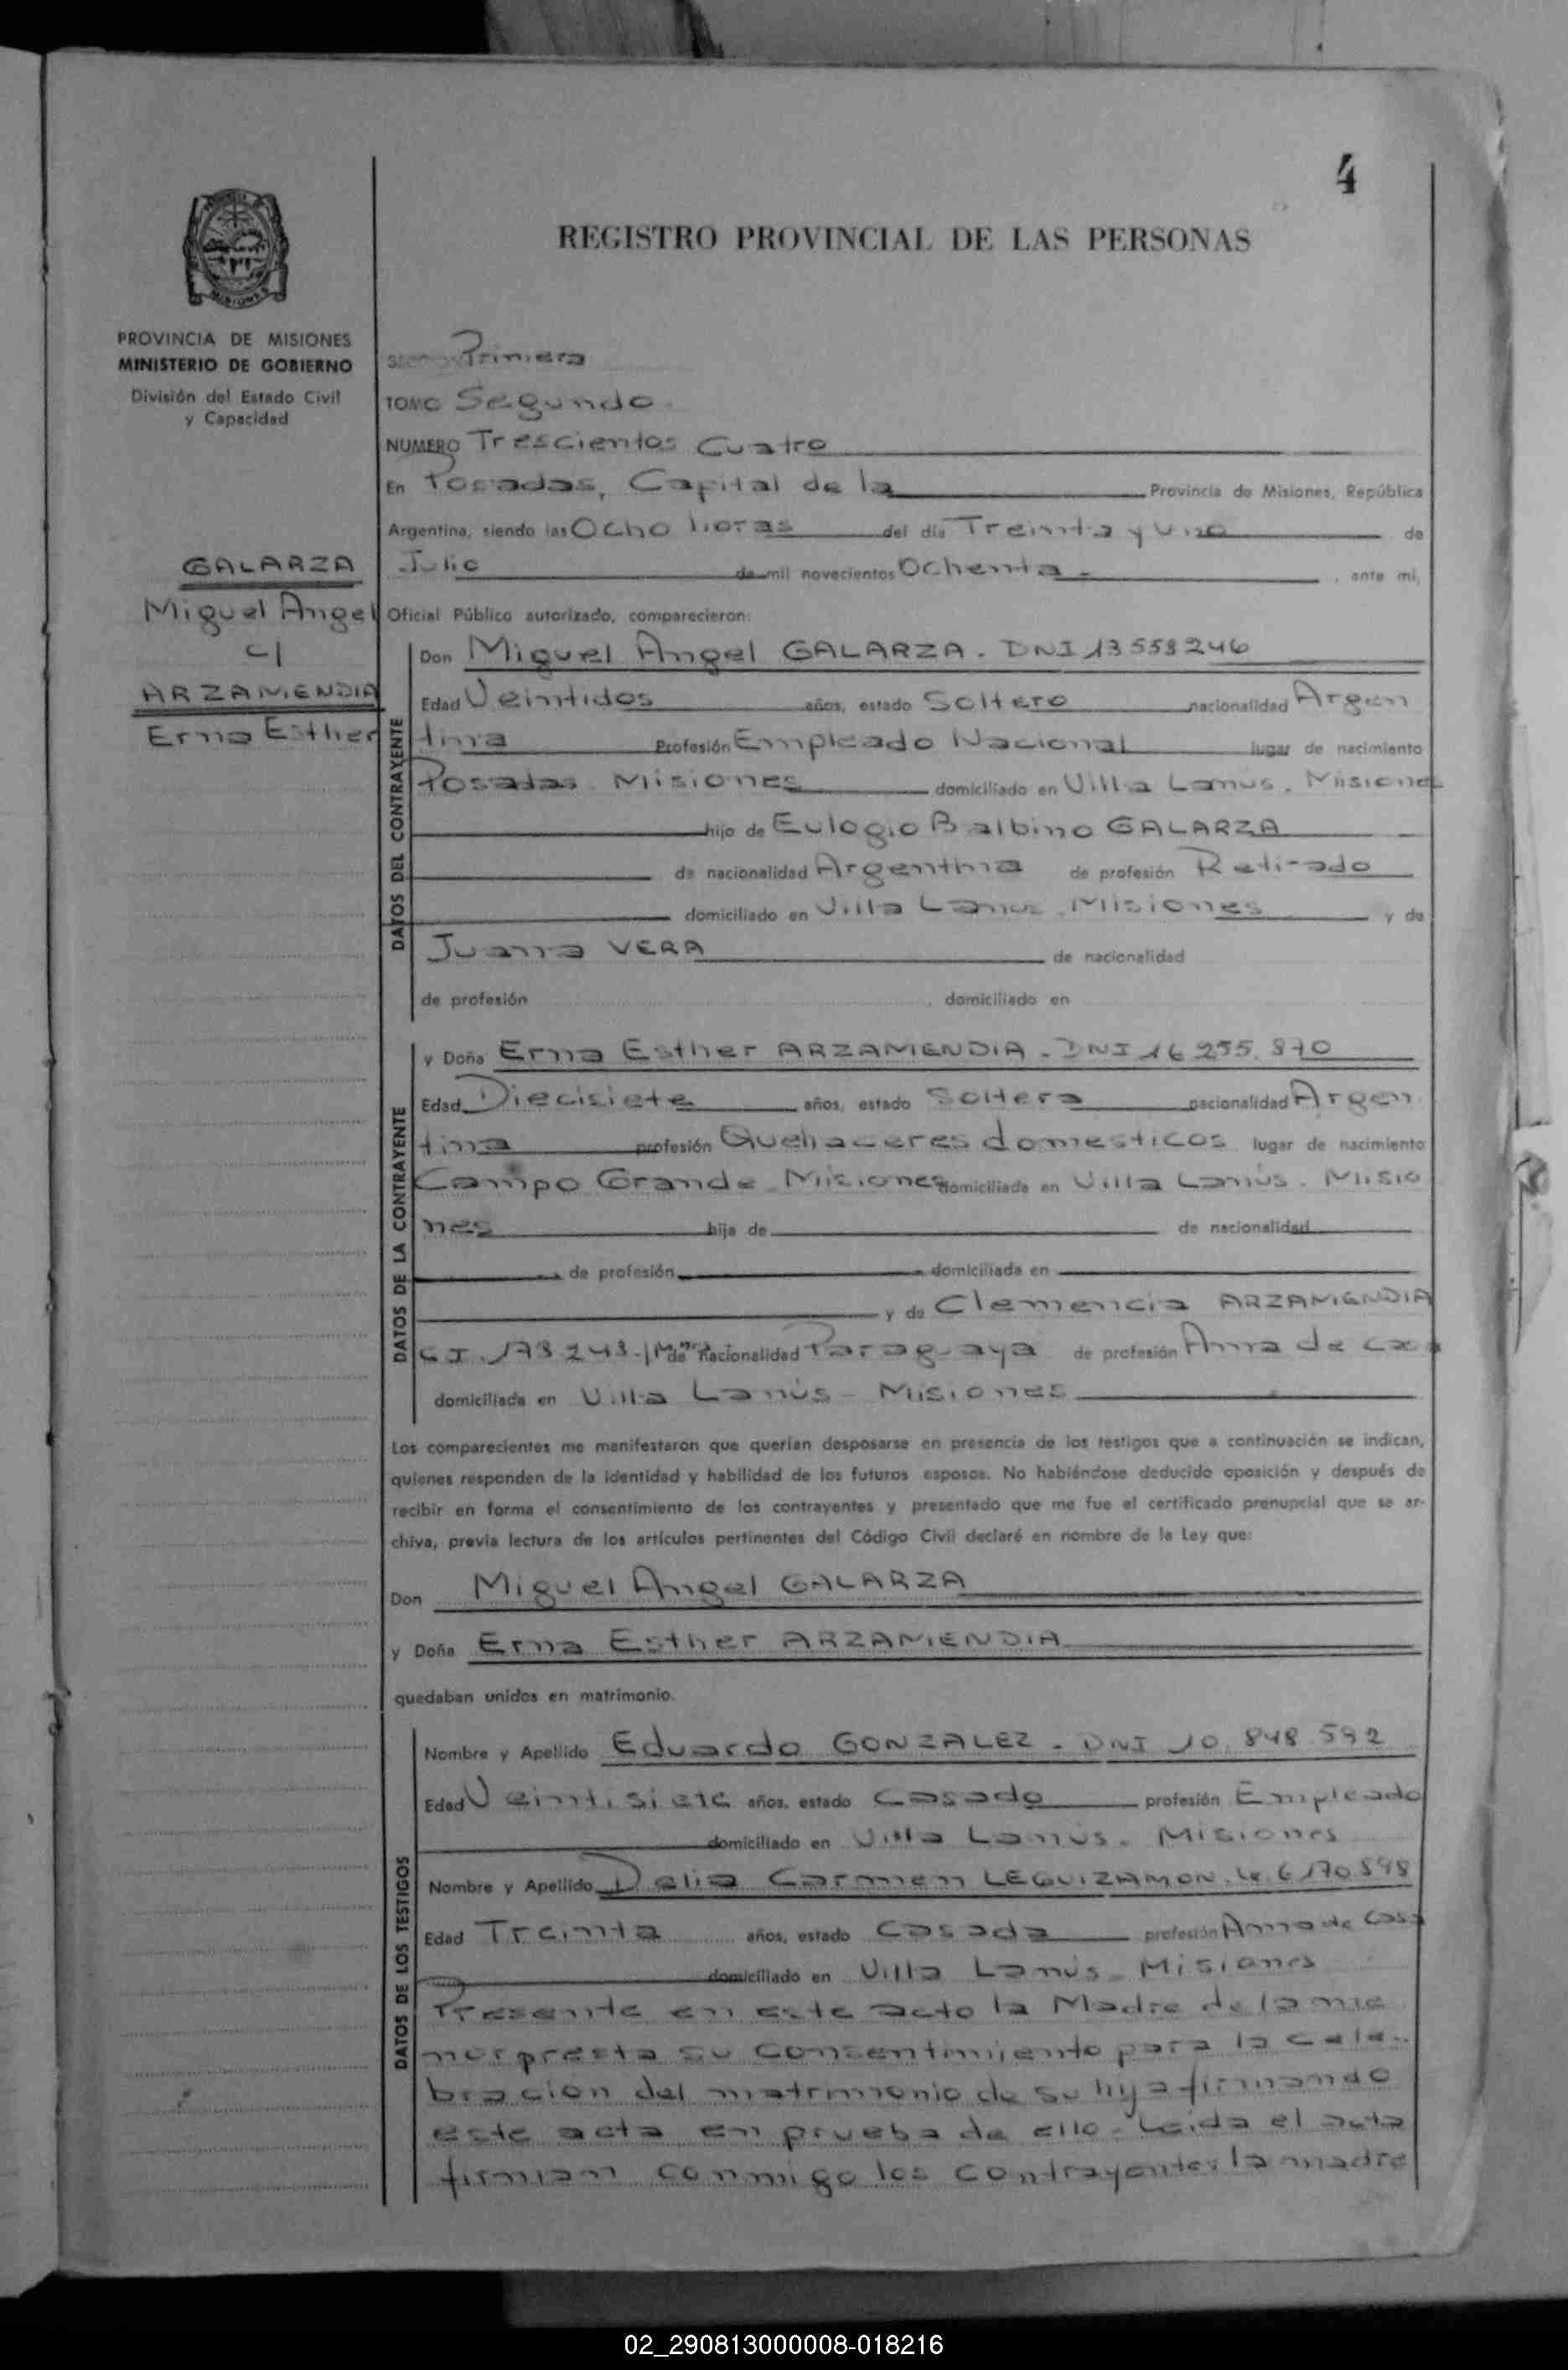 4
REGISTRO PROVINCIAL DE LAS PERSONAS
PROVINCIA DE MISIONES
MINISTERIO DE GOBIERNO
División del Estado Civil
y Capacidad
GALARZA
Miguel Angel
c/
ARZAMENDIA
Erna Esther
Primera
TOMO Segundo
NUMERO Trescientos Cuatro
En Posadas, Capital de la Provincia de Misiones, República
Argentina, siendo las Ocho horas del día Treinta y uno de
Julio de mil novecientos Ochenta - , ante mí,
Oficial Público autorizado, comparecieron:
DATOS DEL CONTRAYENTE
Don Miguel Angel GALARZA - DNI 13558246
Edad Veintidos años, estado Soltero nacionalidad Argen
tina Profesión Empleado Nacional lugar de nacimiento
Posadas - Misiones domiciliado en Villa Lanús - Misiones
hijo de Eulogio Balbino GALARZA
de nacionalidad Argentina de profesión Retirado
domiciliado en Villa Lanus - Misiones y de
Juana VERA de nacionalidad
de profesión , domiciliado en
DATOS DE LA CONTRAYENTE
y Doña Erna Esther ARZAMENDIA - DNI 16 255 870
Edad Diecisiete años, estado Soltera nacionalidad Argen
tina profesión Quehaceres domesticos lugar de nacimiento
Campo Grande - Misiones domiciliada en Villa Lanús - Misio
nes hija de de nacionalidad
de profesión domiciliada en
y de Clemencia ARZAMENDIA
C I 173 243 - de nacionalidad Paraguaya de profesión Ama de casa
domiciliada en Villa Lanús - Misiones
Los comparecientes me manifestaron que querían desposarse en presencia de los testigos que a continuación se indican,
quienes responden de la identidad y habilidad de los futuros esposos. No habiéndose deducido oposición y después de
recibir en forma el consentimiento de los contrayentes y presentado que me fue el certificado prenupcial que se ar-
chiva, previa lectura de los artículos pertinentes del Código Civil declaré en nombre de la Ley que:
Don Miguel Angel GALARZA
y Doña Erna Esther ARZAMENDIA
quedaban unidos en matrimonio.
DATOS DE LOS TESTIGOS
Nombre y Apellido Eduardo GONZALEZ - DNI 10.848.592
Edad Veintisiete años, estado Casado profesión Empleado
domiciliado en Villa Lanús - Misiones
Nombre y Apellido Delia Carmen LEGUIZAMON - 6 170 898
Edad Treinta años, estado Casada profesión Ama de Casa
domiciliado en Villa Lanús - Misiones
Presente en este acto la Madre de la me
nor presta su consentimiento para la cele-
bracion del matrimonio de su hija firmando
este acta en prueba de ello. Leida el acta
firman conmigo los contrayentes la madre
02_290813000008-018216